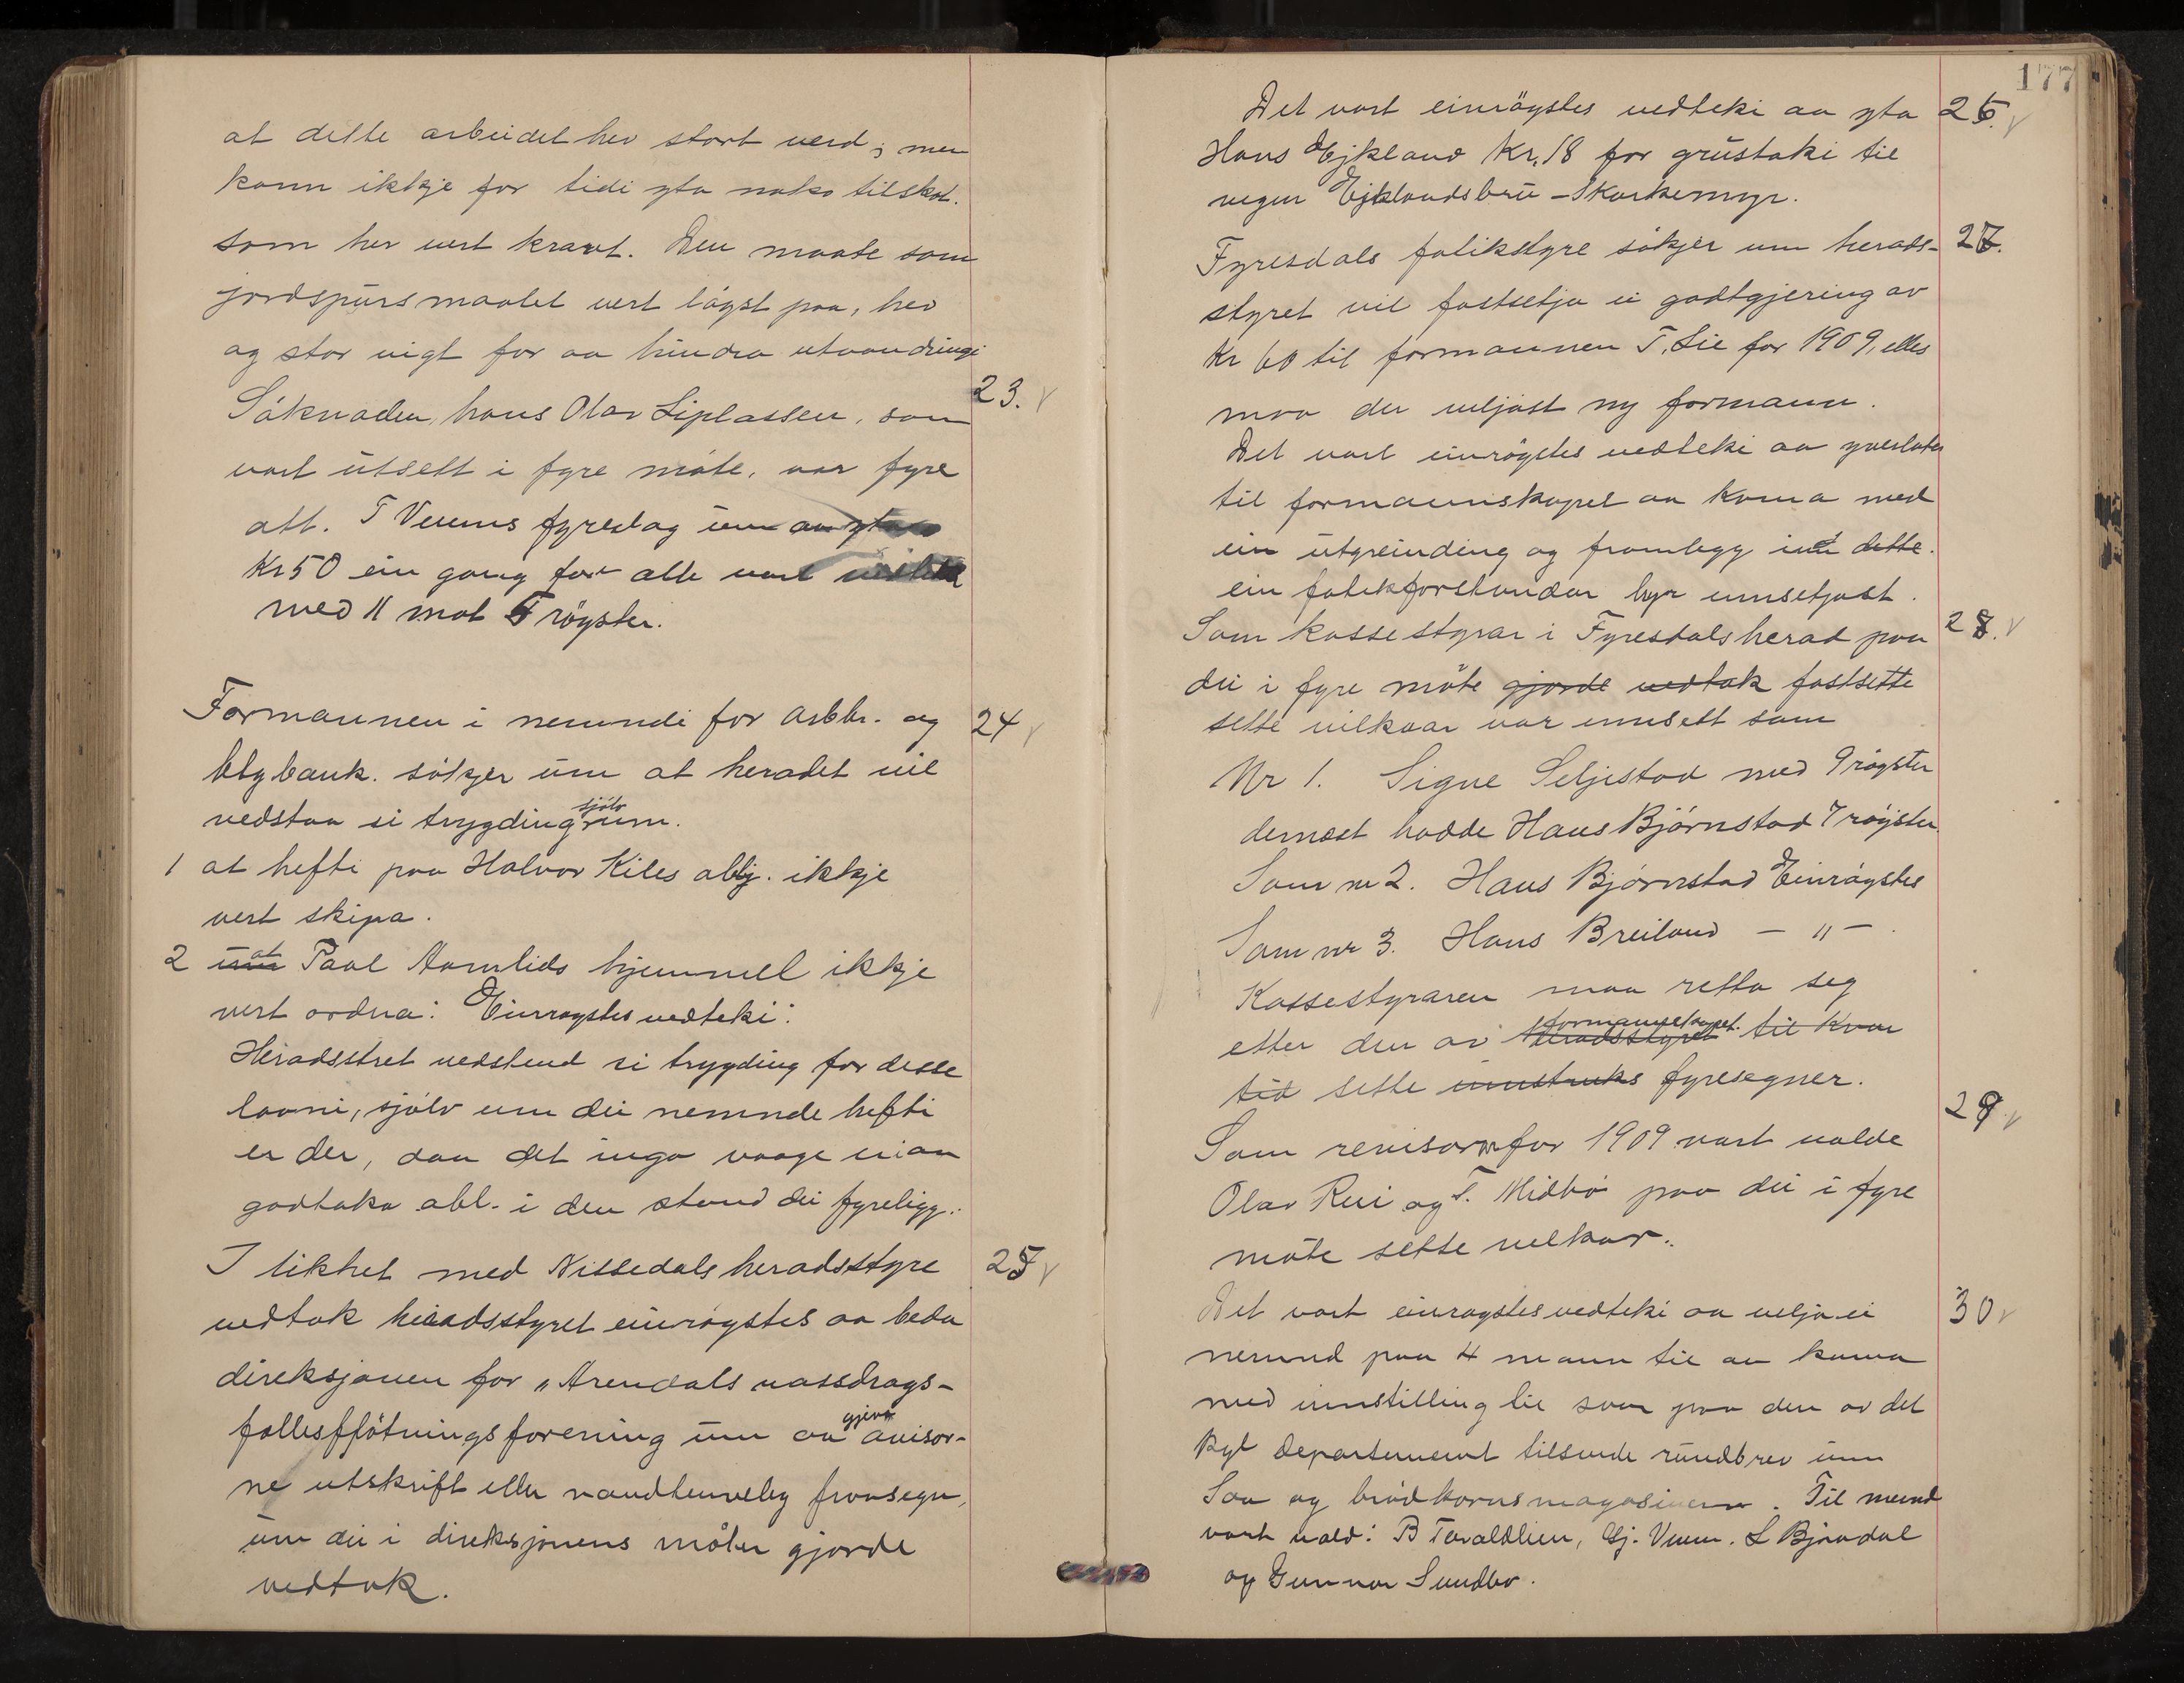 at dette arbeidet hev stort verd; men
kann ikkje for tidi yta noko tilskot.
som her vert kravt. Den maate som
jordspursmaalet vert löyst paa, hev
og stor vigt for aa hindra utvandringi
23.
Söknaden, hans Olav Liplassen, som
vart utsett i fyre möte, var fyre
att. T Veums fyreslag um aa yta
Kr 50 ein gong for alle vart
med 11 mot 5 röyster.
Formannen i nemndi for Arbbr. og 24
bbybank. sökjer um at heradet vil
sjölv
vedstaa si trygding um.
1 at hefti paa Halvor Kiles oblig. ikkje
vert skipa.
2 um at Paal Aamlids hjemmel ikkje
vert ordna: Einröystes vedteki:
Heradsstret vedstend si trygding for desse
laani, sjölv um dei nemnde hefti
er der, daa det inga vaage er i aa
godtaka obl. i den stand dei fyreligg.
I likhet med Nissedals heradsstyre 25
vedtok heradsstyret einröystes aa beda
direksjonen for „Arendals vassdrags-
gjeva
fellesflötningsforening um aa avisor-
ne utskrift eller fraasegn,
um dei i direksjonens möter gjorde
vedtak.
177
Det vart einröystes vedteki aa yta 26.
Hans Ejkland Kr. 18 for grustaki til
vegen Ejklandsbru - Skarkemyr.
Fyresdals folikstyre sökjer um herads- 27.
styret vil fastsetja ei godtgjering av
Kr 60 til formannen T. Lie for 1909, elles
maa der veljast ny formann.
Det vart einröystes vedteki aa yverlata
til formannskapet aa koma med
ein utgreinding og framlegg um dette.
ein folikforstandar byr umsetjast.
Som kassestyrar i Fyresdals herad paa 28.
dei i fyre möte gjorde vedtak fastsette
sette vilkaar var innsett som
Nr 1. Signe Seljestad med 9 röyster
dernæst hadde Hans Björnstad 7 röyster.
Som nr 2. Hans Björnstad Einröystes
Som nr 3. Hans Breiland — „ —
Kassestyraren maa retta seg
formannskapet.
etter den av heradsstyret til kvar
tid sette innstruks fyresegner.
29
Som revisorar for 1909 vart valde
Olav Rui og T. Midbö paa dei i fyre
möte sette velkor.
Det vart einröystes vedteki aa velja ei 30
nemnd paa 4 mann til aa koma
med innstilling til svar paa den av det
Kgl departement tilsende rundbrev um
Saa og brödkornsmagasinerne. Til nemnd
vart vald: B Taraldlien, Gj. Veum. L Björndal
og Gunnar Sundbö.